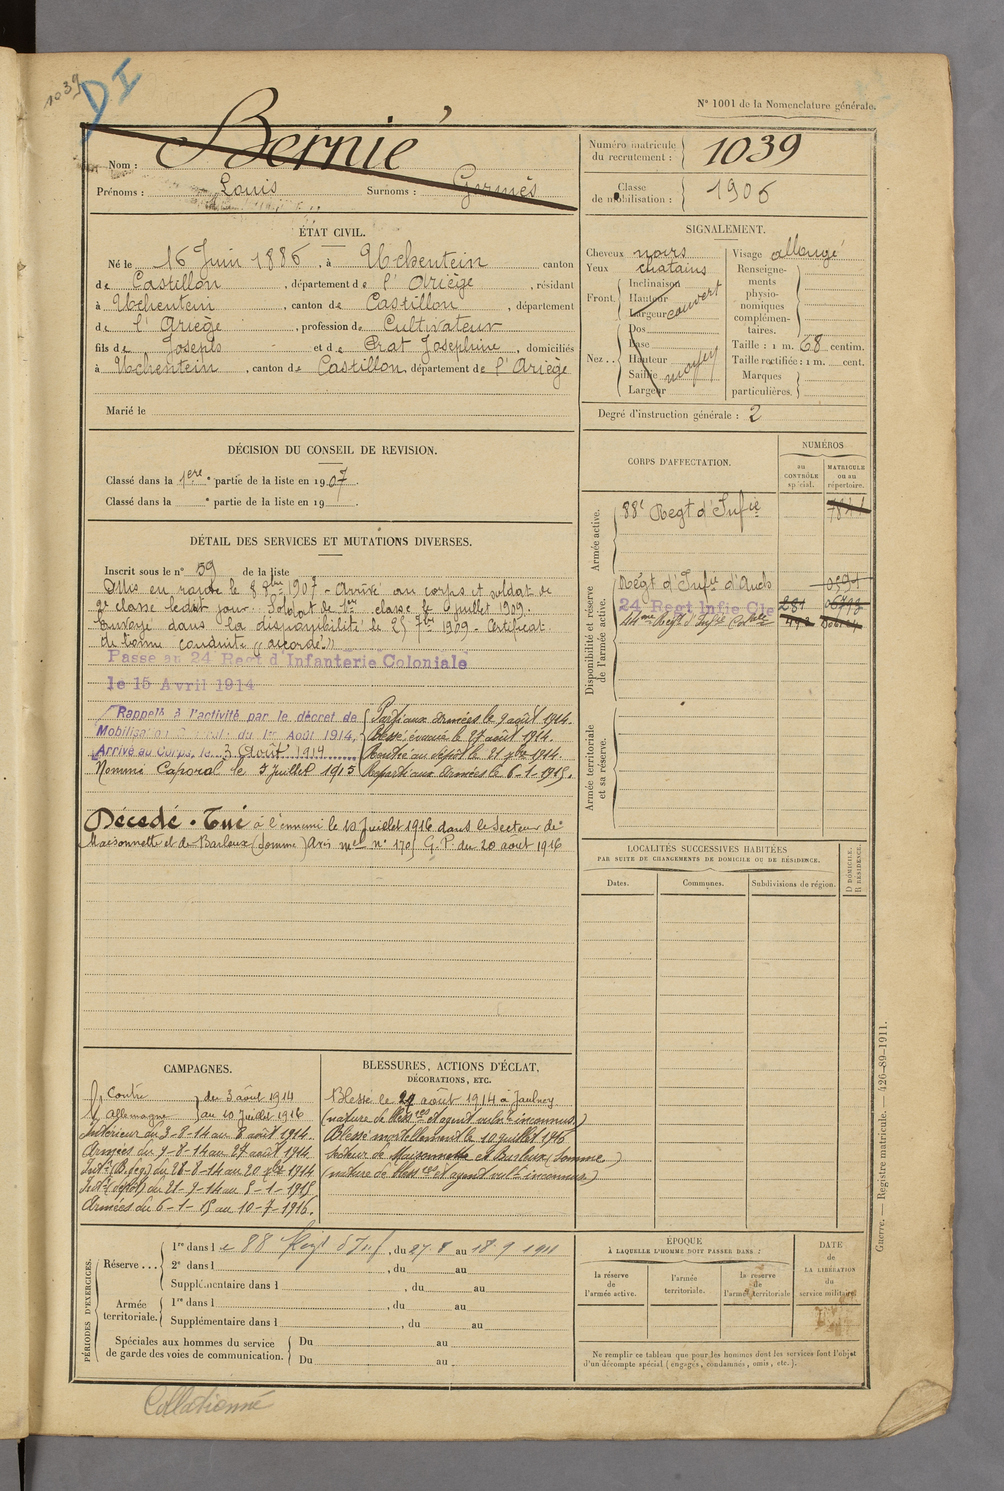 1039
DI
N° 1001 de la Nomenclature générale.
Nom : Bernié
Prénoms : Louis Surnoms :
Numéro matricule du recrutement : 1039
Classe de mobilisation : 1906
ÉTAT CIVIL.
Né le 16 Juin 1886, à Uchentein canton
de Castillon, département de l'Ariège, résidant
à Uchentein, canton de Castillon, département
de l'Ariège, profession de Cultivateur
fils de Joseph et de Prat Josephine, domiciliés
à Uchentein, canton de Castillon, département de l'Ariège
Marié le
SIGNALEMENT.
Cheveux noirs
Yeux chatains
Front. Inclinaison
Hauteur
Largeur couvert
Nez.. Dos
Base
Hauteur
Saillie moyen
Largeur
Visage allongé
Renseigne-
ments
physio-
nomiques
complémen-
taires.
Taille : 1 m. 68 centim.
Taille rectifiée : 1 m. cent.
Marques
particulières.
Degré d'instruction générale : 2
DÉCISION DU CONSEIL DE REVISION.
Classé dans la 1ere partie de la liste en 1907.
Classé dans la e partie de la liste en 19 .
DÉTAIL DES SERVICES ET MUTATIONS DIVERSES.
Inscrit sous le n° 59 de la liste
Mis en route le 8 8bre 1907 - Arrivé au corps et soldat de
2e classe ledit jour. Soldat de 1re classe le 6 juillet 1909.
Envoyé dans la disponibilité le 25 7bre 1909 - Certificat
de bonne conduite "accordé"
Passé au 24e Regt d'Infanterie Coloniale
le 15 Avril 1914
Rappelé à l'activité par le décret de
Mobilisation Générale du 1er Août 1914,
Arrivé au Corps, le 3 Août 1914
Parti aux armées le 9 août 1914.
Blessé évacué le 27 août 1914.
Rentré au dépôt le 21 9bre 1914.
Reparti aux Armées le 6-1-1915.
Nommé Caporal le 5 Juillet 1915
Décédé. Tué à l'ennemi le 10 Juillet 1916 dans le Secteur de
Maisonnette et de Barleux (Somme) Avis mel n° 170 G.P. du 20 août 1916
CORPS D'AFFECTATION.
NUMÉROS
au CONTRÔLE spécial.
MATRICULE ou au répertoire.
Armée active.
88e Regt d'Infie
Disponibilité et réserve de l'armée active.
Régt d'Infie d'Auch
24 Regt Infie Cle 281
44eme Regt d'Infie Coloale
Armée territoriale et sa réserve.
LOCALITÉS SUCCESSIVES HABITÉES
PAR SUITE DE CHANGEMENTS DE DOMICILE OU DE RÉSIDENCE.
Dates. Communes. Subdivisions de région. D DOMICILE. R RÉSIDENCE.
CAMPAGNES.
Contre
Allemagne
du 3 août 1914
au 10 Juillet 1916
Intérieur du 3-8-14 au 8 août 1914.
Armées du 9-8-14 au 27 août 1914
Intr (B. geg) du 28-8-14 au 20 9bre 1914
Intr (dépôt) du 21-9-14 au 5-1-1915
Armées du 6-1-15 au 10-7-1916.
BLESSURES, ACTIONS D'ÉCLAT,
DÉCORATIONS, ETC.
Blessé le 27 août 1914 à Jaulnay
(nature de blessres et agent vulnt inconnus.)
Blessé mortellement le 10 juillet 1916
Secteur de Maisonnette et Barleux (Somme)
(nature de blessces et agent vult inconnus.)
PÉRIODES D'EXERCICES.
Réserve ... 1re dans le 88 Regt d'Inf, du 27-8 au 18-9 1911
2e dans l , du au
Supplémentaire dans l , du au
Armée territoriale. 1re dans l , du au
Supplémentaire dans l , du au
Spéciales aux hommes du service
de garde des voies de communication.
Du au
Du au
ÉPOQUE
À LAQUELLE L'HOMME DOIT PASSER DANS :
la réserve de l'armée active.
l'armée territoriale.
la réserve de l'armée territoriale
DATE de LA LIBÉRATION du service militaire.
Ne remplir ce tableau que pour les hommes dont les services font l'objet
d'un décompte spécial (engagés, condamnés, omis, etc.).
Guerre. — Registre matricule. — 426-89-1911.
Collationné